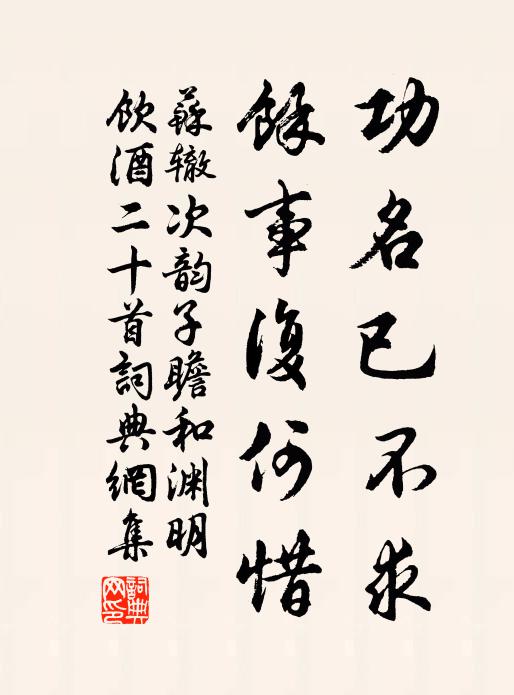 功名已不求
餘事復何惜
蘇辙次韵子瞻和渊明
飲酒二十首詞典網集
詞典網印